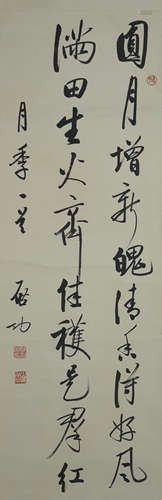 圓月增新魄清香得好風
滿田生火齊佳穫是群紅
月季一
啟功